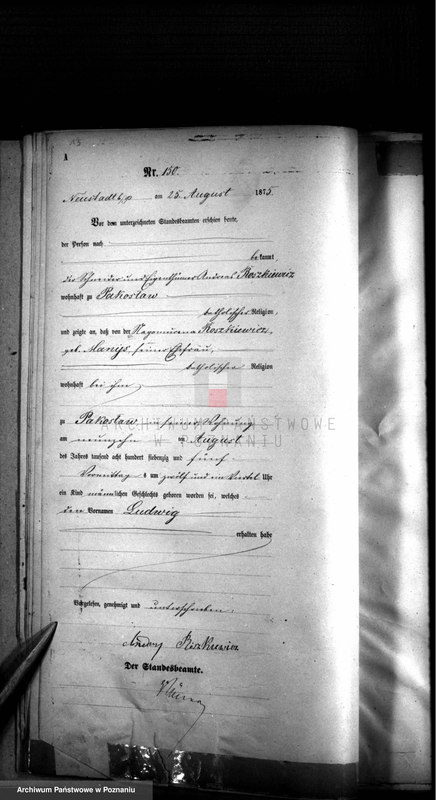 A
Nr. 150.
Neustadt b/p am 25. August 1875.
Vor dem unterzeichneten Standesbeamten erschien heute,
der Person nach
bekannt,
der Schneider und Eigenthümer Andreas Roszkiewicz
wohnhaft zu Pakoslaw
katholischer Religion,
und zeigte an, daß von der Roszkiewicz,
geb. seiner Ehefrau,
katholischer Religion
wohnhaft bei ihm
zu Pakoslaw in seiner Wohnung
am neunzehn ten August
des Jahres tausend acht hundert siebenzig und fünf
Vormittags um zwölf und ein Viertel Uhr
ein Kind männlichen Geschlechts geboren worden sei, welches
den Vornamen Ludwig
erhalten habe
Vorgelesen, genehmigt und unterschrieben.
Andrzy Roszkiewicz
Der Standesbeamte.
ARCHIWUM PAŃSTWOWE
W POZNANIU
Archiwum Państwowe w Poznaniu